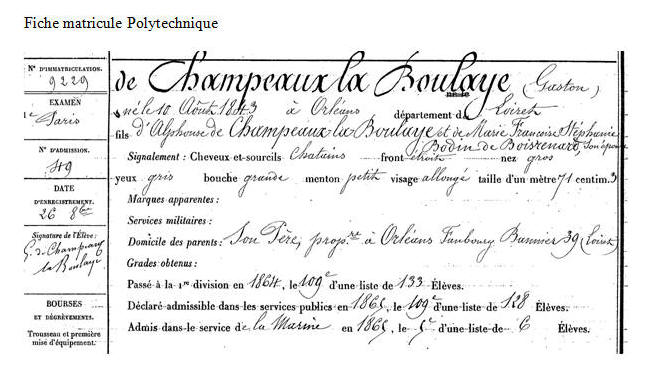 Fiche matricule Polytechnique
N° D'IMMATRICULATION.
9229
EXAMEN
Paris
N° D'ADMISSION.
49
DATE
D'ENREGISTREMENT.
26 8bre
Signature de l'Élève:
G. de Champeaux
la Boulaye
BOURSES
ET DÉGRÈVEMENTS.
Trousseau et première
mise d'équipement.
de Champeaux la Boulaye (Gaston)
né le 10 Août 1843 à Orléans département d Loiret
fils d'Alphonse de Champeaux-la-Boulaye et de Marie Françoise Stéphanie
Bodin de Boisrenard, son épouse
Signalement : Cheveux et sourcils Chatains front étroit nez gros
yeux gris bouche grande menton petit visage allongé taille d'un mètre 71 centim. 3
Marques apparentes :
Services militaires :
Domicile des parents : Son Père, propre à Orléans Faubourg Bannier 39 (Loiret)
Grades obtenus :
Passé à la 1re division en 1864, le 109e d'une liste de 133 Élèves.
Déclaré admissible dans les services publics en 1865, le 109e d'une liste de 128 Élèves.
Admis dans le service de la Marine en 1865, le 5e d'une liste de 6 Élèves.